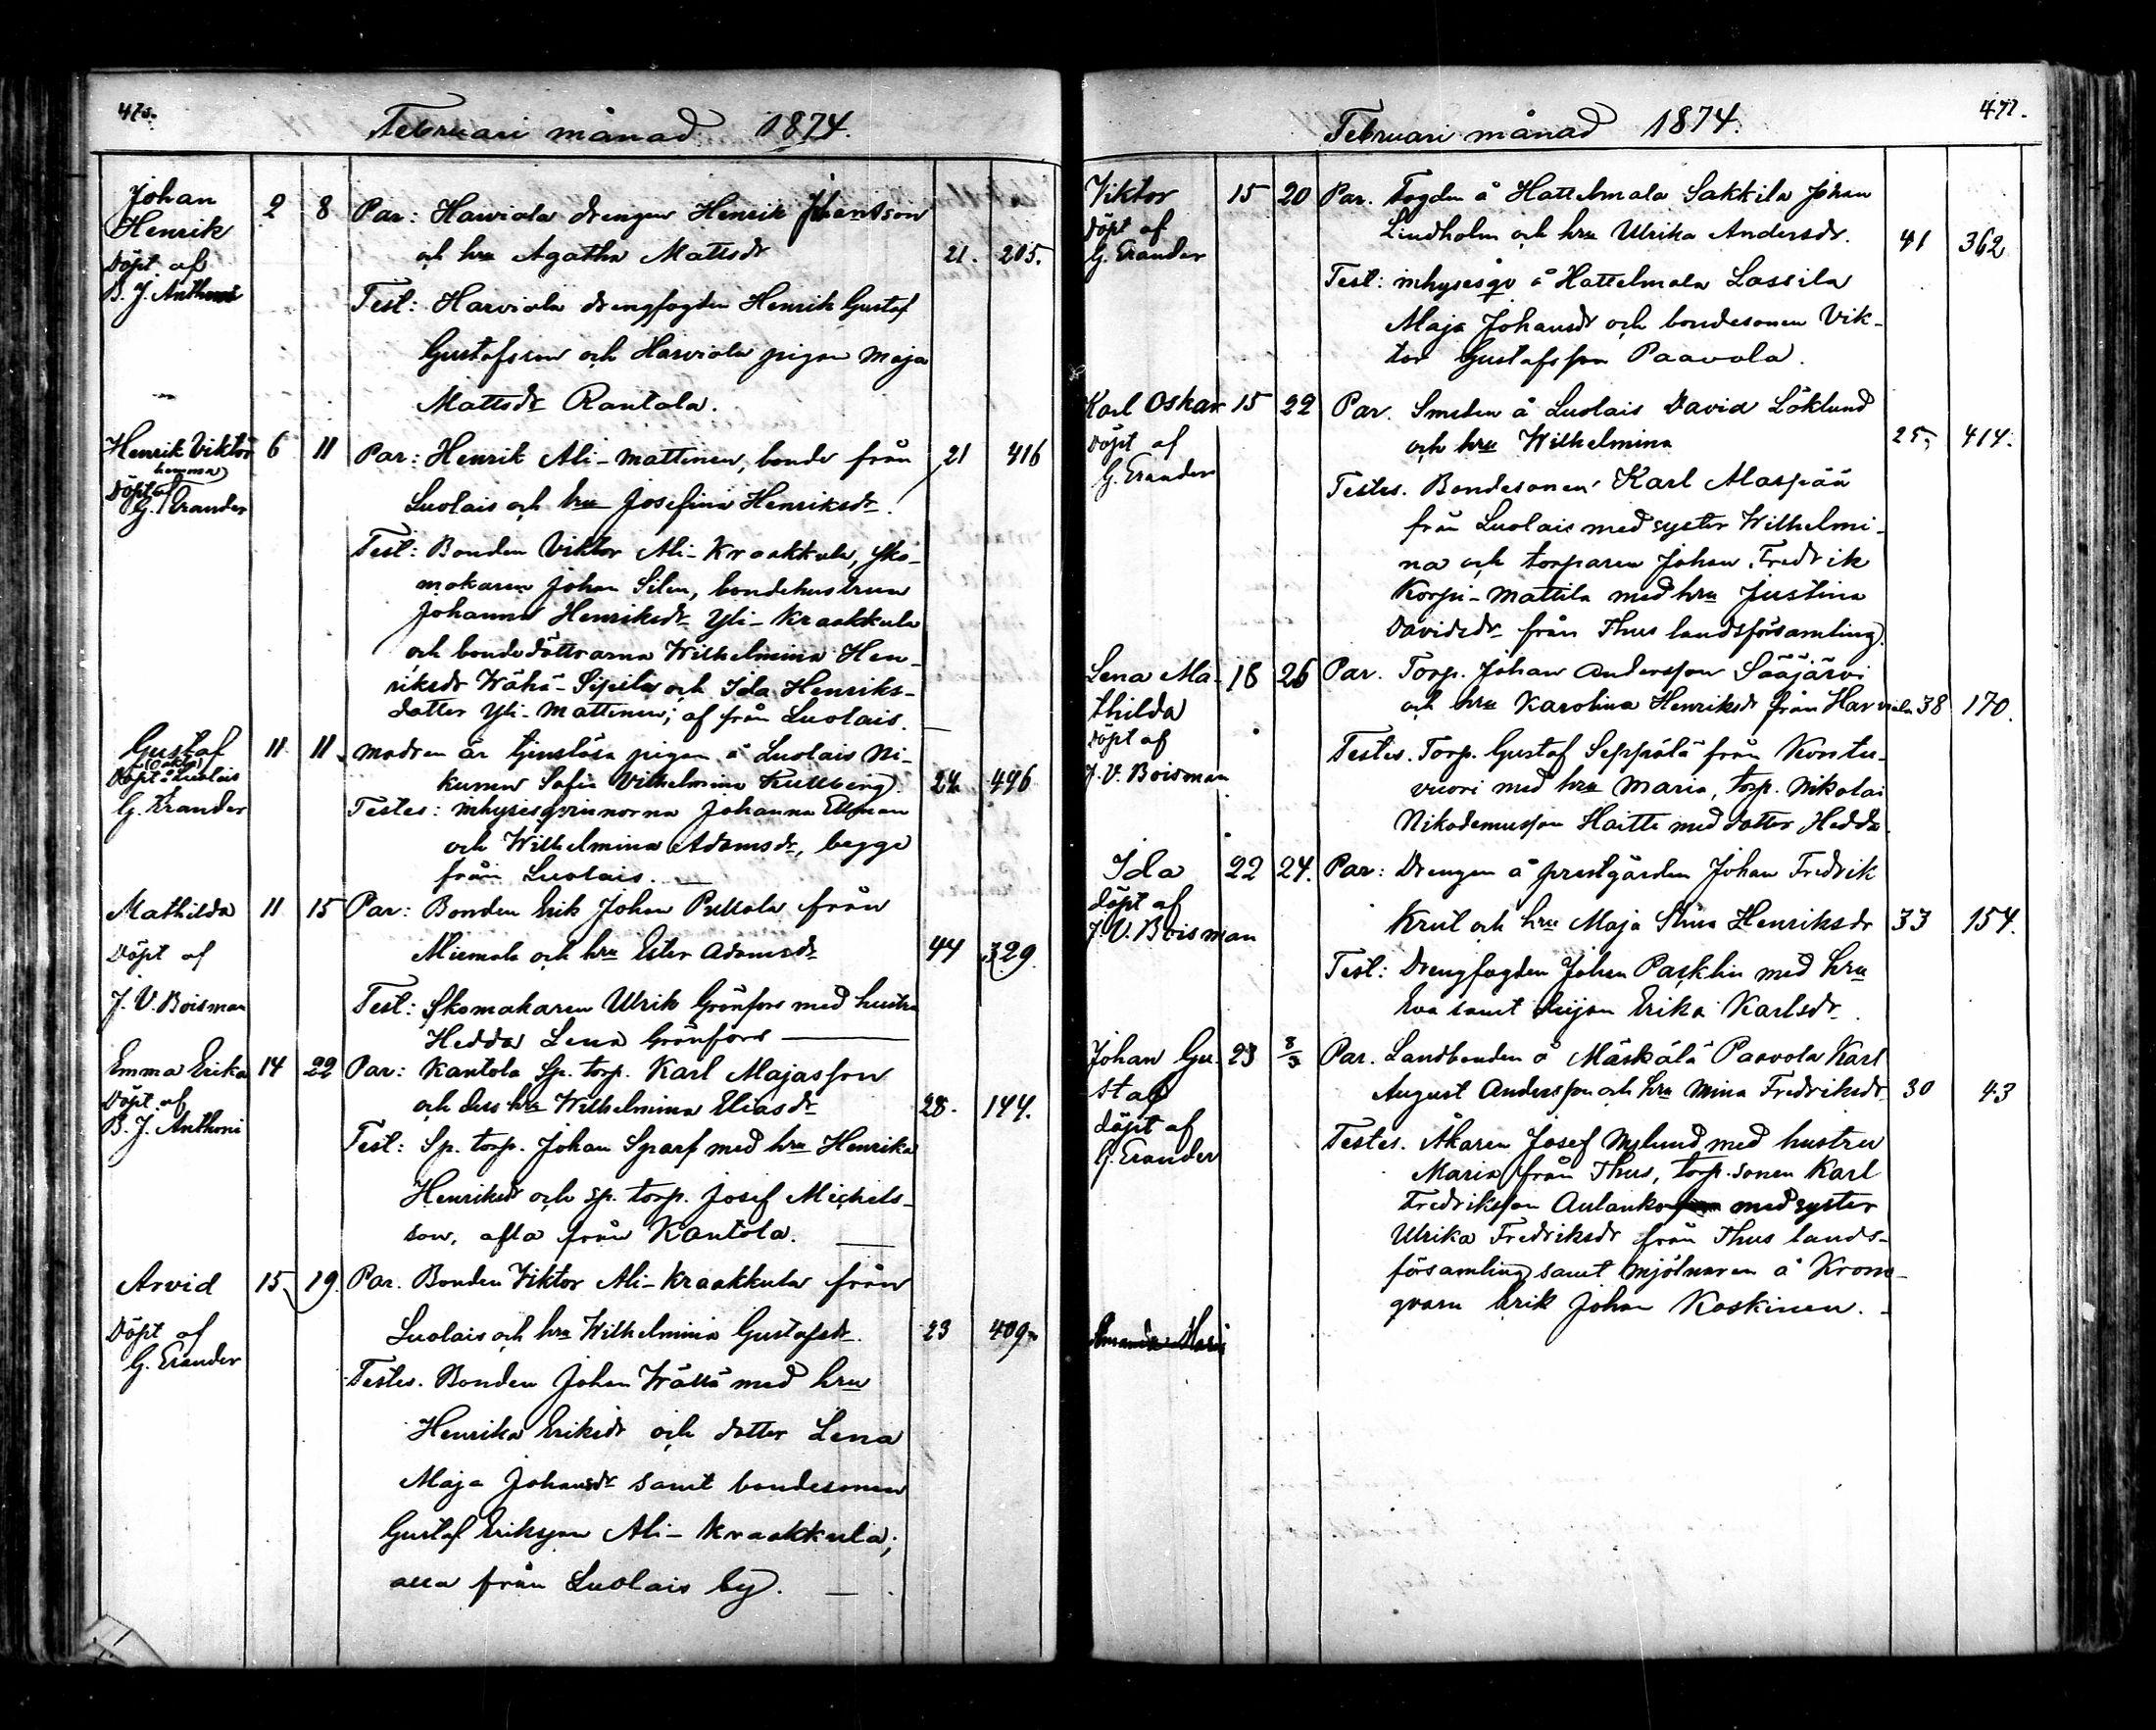 Februari månad 1874.
Johan 2 8 Par: Harviala drengen Henrik Johansson
Henrik
och hru Agatha Mattsdr 21. 205.
Döpt af
B. J. Anthoni
Test: Harviala drengfogden Henrik Gustaf
Gustafsson och Harviala pigan Maja
Mattsdr Rantala.
Henrik Viktor 6 11 Par: Henrik Ali-Mattinen, bonde från 21 416
hemma
Döpt af
G. Erander
Luolais och hru Josefina Henriksdr.
Test: Bonden Viktor Ali-Kraakkula, sko-
makaren Johan Silen, bondehustrun
Johanna Henriksdr Yli-Kraakkula
och bondedöttrarna Wilhelmina Hen-
riksdr Wähä-Sipilä och Ida Henriks-
dotter Yli-Mattinen; af från Luolais.
Gustaf 11 11. modren är tjenstlösa pigan å Luolais Ni-
(oäkta)
Döpt å Luolais
kunen Sofia Vilhelmina 24 446
G. Erander
Testes: inhysesqvinnorna Johanna Ellman
och Wilhelmina Adamsdr, begge
från Luolais.
Mathilda 11 15 Par: Bonden Erik Johan Pullola från
Döpt af
Miemala och hru Ester Adamsdr 44 329.
J. V. Boisman
Test: Skomakaren Ulrik Grönfors med hustru
Hedda Lena Grönfors
Emma Erika 14 22 Par: Kantola Sp. torp. Karl Majasson
Döpt af
och dess hru Wilhelmina Eliasdr 28. 144.
B. J. Anthoni
Test: Sp. torp. Johan Sparf med hru Henrika
Henriksdr och sp. torp. Josef Michels-
son, alla från Kantola.
Arvid 15 19. Par. Bonden Viktor Ali-Kraakkula från
Döpt af
Luolais och hru Wilhelmina Gustafsdr. 23 409
G. Erander
Testes. Bonden Johan Wällä med hru
Henrika Eriksdr och dotter Lena
Maja Johansdr samt bondesonen
Gustaf Eriksson Ali-Kraakkula;
alla från Luolais by.
Februari månad 1874. 477.
Viktor 15 20 Par. Fogden å Hattelmala Sakkila Johan
Döpt af
Lindholm och hru Ulrika Andersdr. 41 362
G. Erander
Test: inhysesqv å Hattelmala Lassila
Maja Johansdr och bondesonen Vik-
tor Gustafsson Paavola.
Karl Oskar 15 22 Par. Smeden å Luolais David Löklund
Döpt af
och hru Wilhelmina 25 414.
G. Erander
Testes. Bondesonen Karl Alaspää
från Luolais med syster Wilhelmi-
na och torparen Johan Fredrik
Korpi-Mattila med hru Justina
Davidsdr från Thus landsförsamling.
Lena Ma- 18 26 Par. Torp. Johan Andersson Sääjärvi
thilda
och hru Karolina Henriksdr från Harviala 38 170.
Döpt af
J. V. Boisman
Testes. Torp. Gustaf Seppälä från Kontu-
vuori med hru Maria, torp. Nikolai
Nikodemusson Haitti med dotter Hedda.
Ida 22 24. Par: Drengen å prestgården Johan Fredrik
döpt af
J. V. Boisman
Krut och hru Maja Stina Henriksdr 33 154.
Test: Drengfogden Johan Pasklin med hru
Eva samt Erika Karlsdr.
Johan Gu- 23 8/3 Par. Landbonden å Mäskälä Paavola Karl
staf
August Andersson och hru Mina Fredriksdr 30 43
döpt af
G. Erander
Testes. Åkaren Josef Nylund med hustru
Maria från Thus, torp. sonen Karl
Fredriksson Aulanko med syster
Ulrika Fredriksdr från Thus lands-
församling samt mjölnaren å Krono-
qvarn Erik Johan Koskinen.